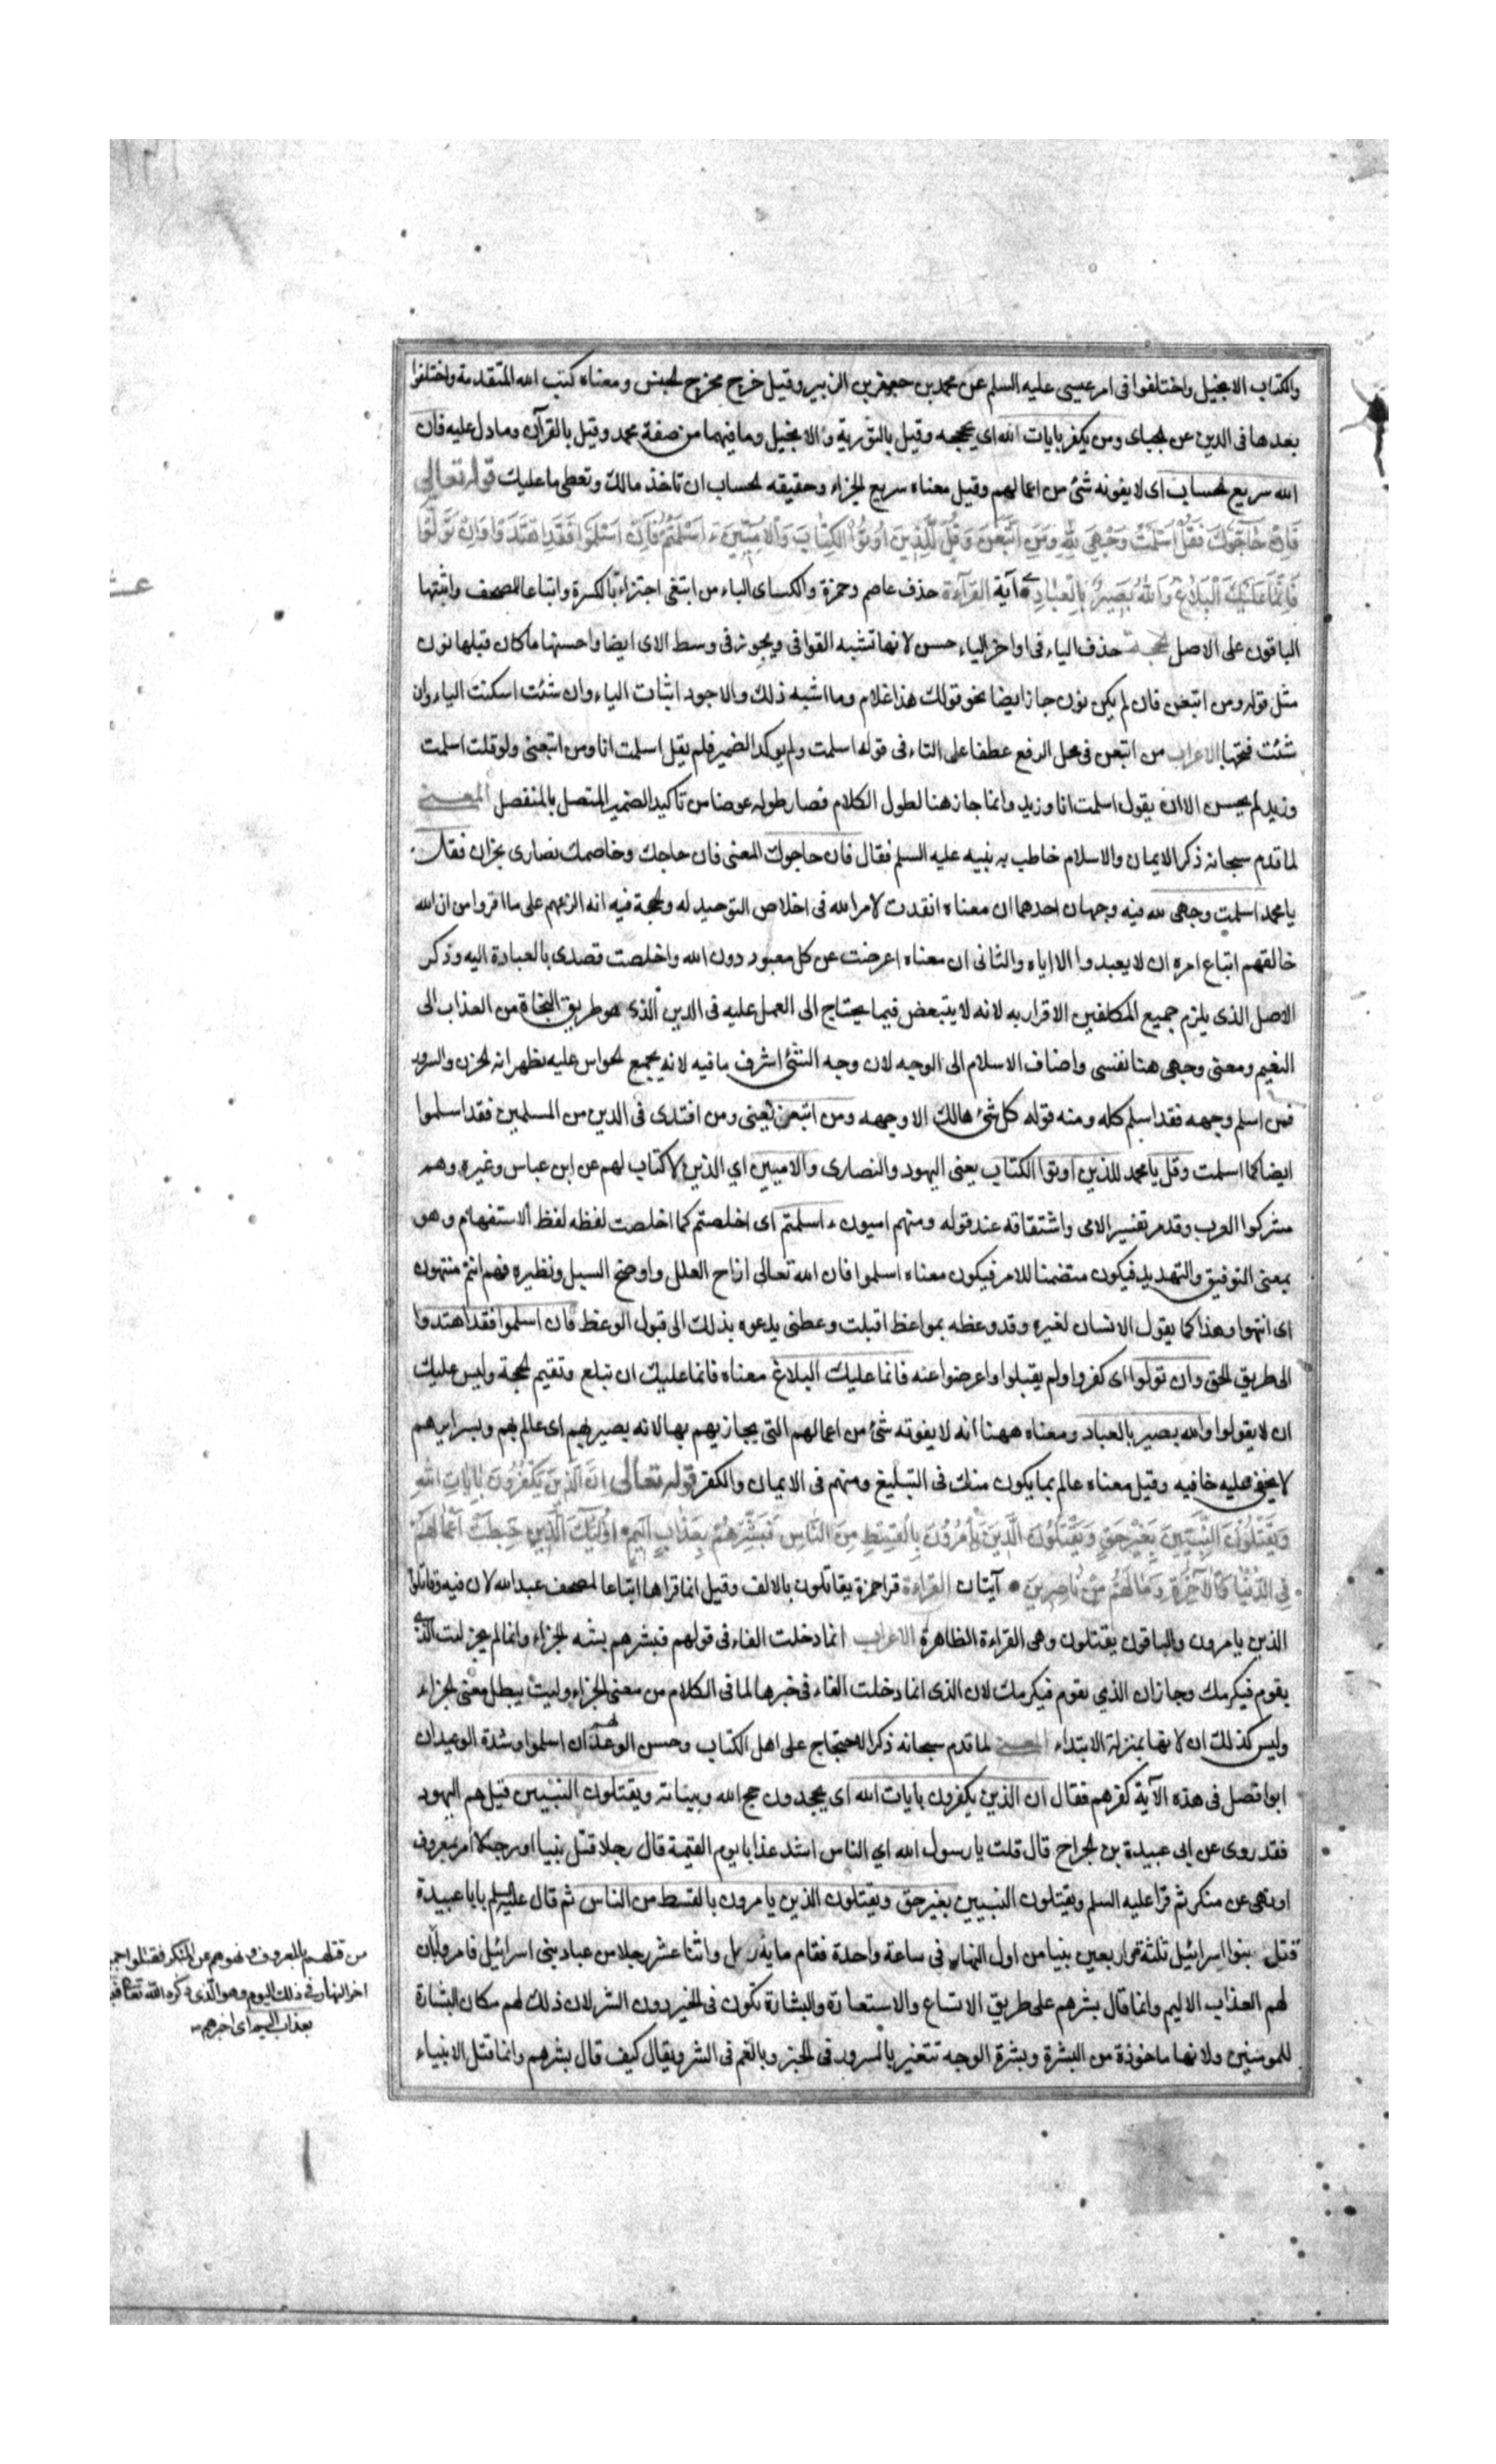 والكتاب الانجيل واختلفوا فى امر عيسى عليه السلم عن محمد بن جعفر بن الزبير وقيل خرج مخرج الجنس ومعناه كتب الله المتقدمة واختلفوا
بعدها فى الدين عن الجبائى ومن يكفر بايات الله اى بحججه وقيل بالتورية والانجيل وما فيهما من صفة محمد وقيل بالقرآن وما دل عليه فان
الله سريع الحساب اى لا يفوته شئ من اعمالهم وقيل معناه سريع الجزاء وحقيقه الحساب ان تاخذ مالك وتعطى ما عليك قوله تعالى
فَاِنْ حَاجُّوكَ فَقُلْ اَسْلَمْتُ وَجْهِىَ لِلّٰهِ وَمَنِ اتَّبَعَنِ وَقُلْ لِلَّذِينَ اُوتُوا الْكِتَابَ وَالْاُمِّيِّينَ ءَاَسْلَمْتُمْ فَاِنْ اَسْلَمُوا فَقَدِ اهْتَدَوْا وَاِنْ تَوَلَّوْا
فَاِنَّمَا عَلَيْكَ الْبَلَاغُ وَاللّٰهُ بَصِيرٌ بِالْعِبَادِ آية القراءة حذف عاصم وحمزة والكسائى الياء من اتبعنى اجتزاء بالكسرة واتباعا للمصحف واثبتها
الباقون على الاصل الحجة حذف الياء فى اواخر الياء حسن لانها تشبه القوافى ويجوز فى وسط الاى ايضا واحسنها ما كان قبلها نون
مثل قوله ومن اتبعن فان لم يكن نون جاز ايضا نحو قولك هذا غلام وما اشبه ذلك والاجود اثبات الياء وان شئت اسكنت الياء وان
شئت فتحتها الاعراب من اتبعن فى محل الرفع عطفا على التاء فى قوله اسلمت ولم يوكد الضمير فلم يقل اسلمت انا ومن اتبعنى ولو قلت اسلمت
وزيد لم يحسن الا ان يقول اسلمت انا وزيد وانما جاز هنا لطول الكلام فصار طوله عوضا من تاكيد الضمير المتصل بالمنفصل المعنى
لما قدم سبحانه ذكر الايمان والاسلام خاطب به نبيه عليه السلم فقال فان حاجوك المعنى فان حاجك وخاصمك نصارى نجران فقل
يا محمد اسلمت وجهى لله فيه وجهان احدهما ان معناه انقدت لامر الله فى اخلاص التوحيد له والحجة فيه انه الزمهم على ما اقروا من ان الله
خالقهم اتباع امره ان لا يعبدوا الا اياه والثانى ان معناه اعرضت عن كل معبود دون الله واخلصت قصدى بالعبادة اليه وذكر
الاصل الذى يلزم جميع المكلفين الاقرار به لانه لا يتبعض فيما يحتاج الى العمل عليه فى الدين الذى هو طريق النجاة من العذاب الى
النعيم ومعنى وجهى هنا نفسى واضاف الاسلام الى الوجه لان وجه الشئ اشرف ما فيه لانه يجمع الحواس عليه يظهر انه الحزن والسرور
فمن اسلم وجهه فقد اسلم كله ومنه قوله كل شئ هالك الا وجهه ومن اتبعن يعنى ومن اقتدى فى الدين من المسلمين فقد اسلموا
ايضا كما اسلمت وقل يا محمد للذين اوتوا الكتاب يعنى اليهود والنصارى والاميين اي الذين لا كتاب لهم عن ابن عباس وغيره وهم
مشركوا العرب وقد مر تفسير الامى واشتقاقه عند قوله ومنهم اميون ءاسلمتم اى اخلصتم كما اخلصت لفظه لفظ الاستفهام وهو
بمعنى التوقيف والتهديد فيكون متضمنا للامر فيكون معناه اسلموا فان الله تعالى ازاح العلل واوضح السبل ونظيره فهل انتم منتهون
اى انتهوا وهذا كما يقول الانسان لغيره وقد وعظه بمواعظ اقبلت وعظى يدعوه بذلك الى قبول الوعظ فان اسلموا فقد اهتدوا
الى طريق الحق وان تولوا اى كفروا ولم يقبلوا واعرضوا عنه فانما عليك البلاغ معناه فانما عليك ان تبلغ وتقيم الحجة وليس عليك
ان لا يقولوا والله بصير بالعباد ومعناه ههنا انه لا يفوته شئ من اعمالهم التى يجازيهم بها لانه بصير بهم اى عالم بهم وبسرايرهم
لا يخفى عليه خافيه وقيل معناه عالم بما يكون منك فى التبليغ ومنهم فى الايمان والكفر قوله تعالى اِنَّ الَّذِينَ يَكْفُرُونَ بِاٰيَاتِ اللّٰهِ
وَيَقْتُلُونَ النَّبِيِّينَ بِغَيْرِ حَقٍّ وَيَقْتُلُونَ الَّذِينَ يَأْمُرُونَ بِالْقِسْطِ مِنَ النَّاسِ فَبَشِّرْهُمْ بِعَذَابٍ اَلِيمٍ اُولٰئِكَ الَّذِينَ حَبِطَتْ اَعْمَالُهُمْ
فِى الدُّنْيَا وَالْآخِرَةِ وَمَا لَهُمْ مِنْ نَاصِرِينَ آيتان القراءة قرا حمزة يقاتلون بالالف وقيل انما قراها اتباعا لمصحف عبد الله لان فيه وقاتلوا
الذين يامرون والباقون يقتلون وهى القراءة الظاهرة الاعراب انما دخلت الفاء فى قولهم فبشرهم بشبه الجزاء وانما لم يجز ليت الذى
يقوم فيكرمك وجاز ان الذي يقوم فيكرمك لان الذى انما دخلت الفاء فى خبرها لما فى الكلام من معنى الجزاء وليت يبطل معنى الجزاء
وليس كذلك ان لانها بمنزلة الابتداء المعنى لما قدم سبحانه ذكر الاحتجاج على اهل الكتاب وحسن الوعد لهم ان اسلموا وشدة الوعيد ان
ابوا فصل فى هذه الآية كفرهم فقال ان الذين يكفرون بايات الله اى يجحدون حجج الله وبيناته ويقتلون النبيين قيل هم اليهود
فقد روى عن ابى عبيدة بن الجراح قال قلت يا رسول الله اي الناس اشد عذابا يوم القيمة قال رجلا قتل نبيا او رجلا امر بمعروف
او نهى عن منكر ثم قرا عليه السلم ويقتلون النبيين بغير حق ويقتلون الذين يامرون بالقسط من الناس ثم قال عليه السلم يا با عبيدة
قتل بنوا اسرائيل ثلثة واربعين نبيا من اول النهار فى ساعة واحدة فقام مايه رجل واثنا عشر رجلا من عباد بنى اسرائيل فامروا
لهم العذاب الاليم وانما قال بشرهم على طريق الاتساع والاستعارة والبشارة تكون فى الخير دون الشر لان ذلك لهم مكان البشارة
للمومنين ولانها ماخوذة من البشرة وبشرة الوجه تتغير بالسرور فى الخير وبالغم فى الشر ويقال كيف قال بشرهم وانما قتل الانبياء
من قتلهم بالمعروف ونهوهم عن المنكر فقتلوا
اخر النهار فى ذلك اليوم وهو الذى ذكره الله تعالى
بعذاب اليم اى اخبرهم